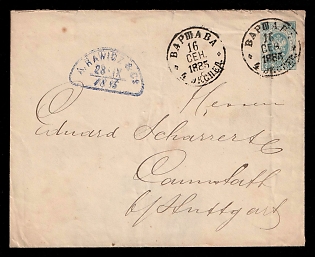 ВАРШАВА
16
СЕН.
1885
ВАРШАВА
16
СЕН.
1885
28 IX
1885
Herren
Eduard Scharrer & Co
Cannstatt
b/Stuttgart